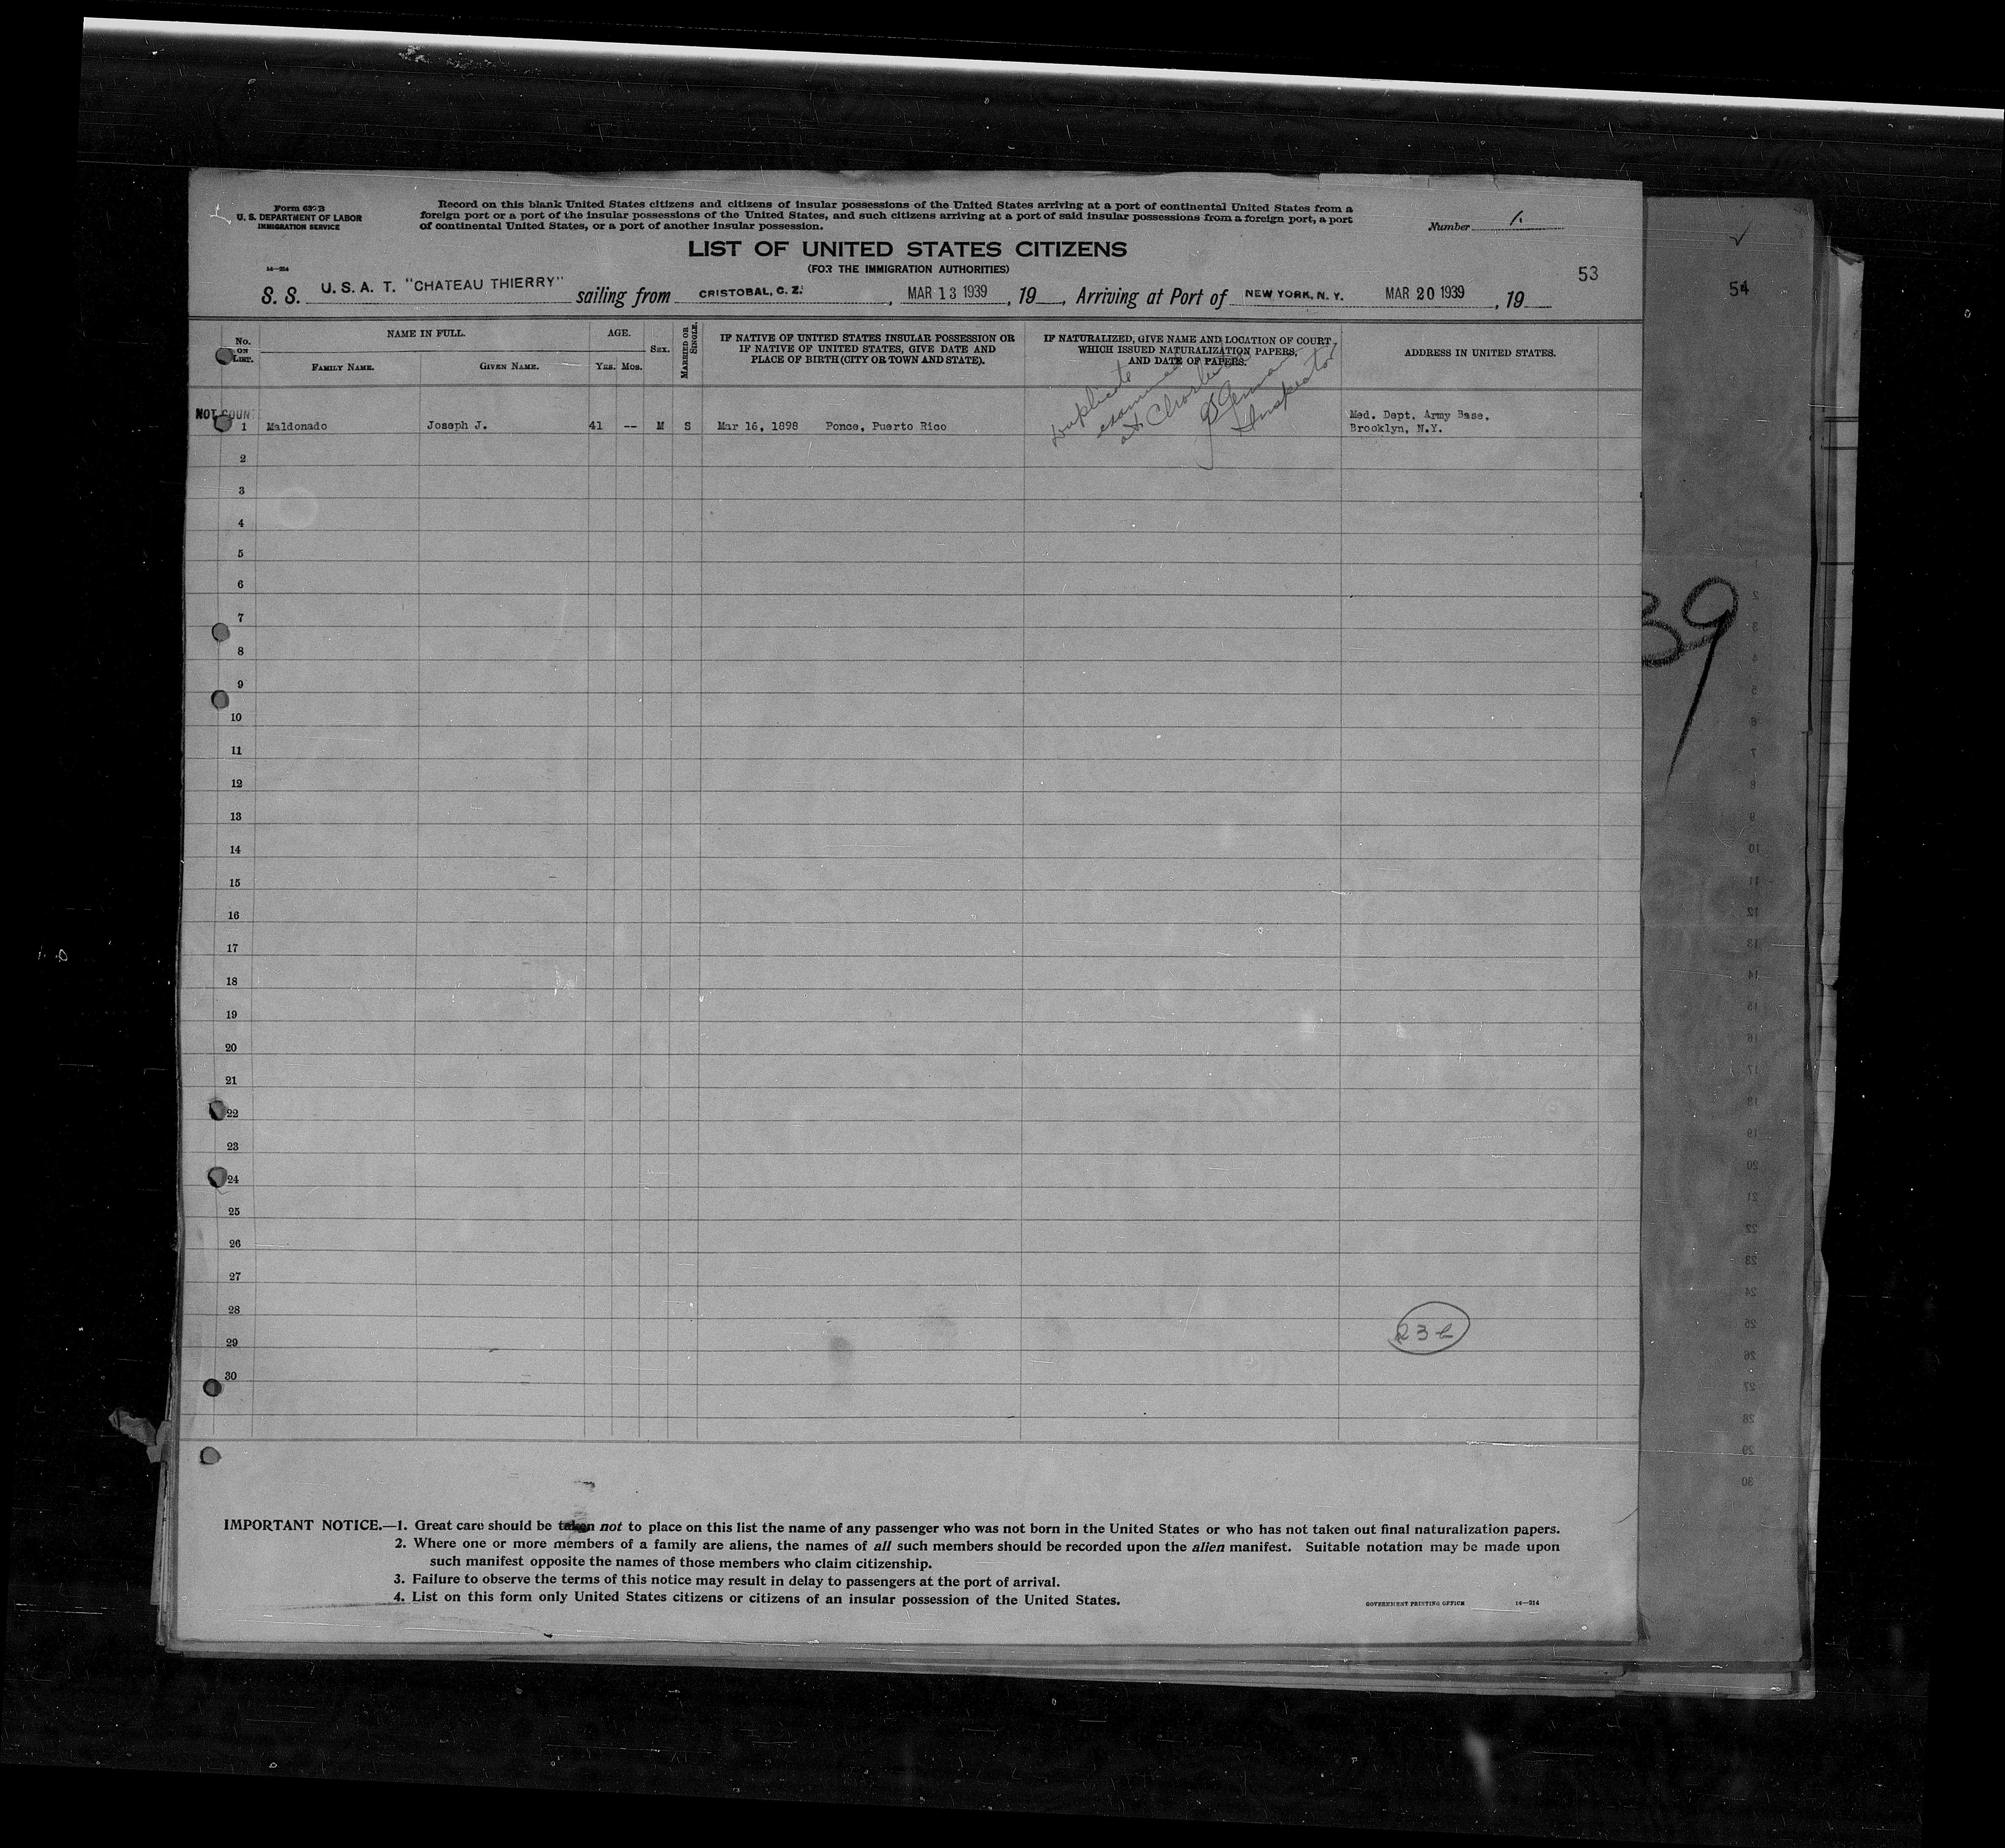 Form 630-B
U. S. DEPARTMENT OF LABOR
IMMIGRATION SERVICE
Record on this blank United States citizens and citizens of insular possessions of the United States arriving at a port of continental United States from a
foreign port or a port of the insular possessions of the United States, and such citizens arriving at a port of said insular possessions from a foreign port, a port
of continental United States, or a port of another insular possession.
Number 1.
LIST OF UNITED STATES CITIZENS
(FOR THE IMMIGRATION AUTHORITIES)
53
54
14—214
S. S. U. S. A. T. "CHATEAU THIERRY" sailing from CRISTOBAL, C. Z. , MAR 13 1939 , 19 , Arriving at Port of NEW YORK, N. Y. MAR 20 1939 , 19
No. ON LIST.
NAME IN FULL.
FAMILY NAME.
GIVEN NAME.
AGE.
YRS. MOS.
SEX.
MARRIED OR SINGLE.
IF NATIVE OF UNITED STATES INSULAR POSSESSION OR
IF NATIVE OF UNITED STATES, GIVE DATE AND
PLACE OF BIRTH (CITY OR TOWN AND STATE).
IF NATURALIZED, GIVE NAME AND LOCATION OF COURT
WHICH ISSUED NATURALIZATION PAPERS,
AND DATE OF PAPERS.
ADDRESS IN UNITED STATES.
Duplicate
examined
at
Inspector
NOT COUNT
1 Maldonado Joseph J. 41 -- M S Mar 16, 1898 Ponce, Puerto Rico Med. Dept. Army Base,
Brooklyn, N.Y.
2
3
4
5
6
7
8
9
10
11
12
13
14
15
16
17
18
19
20
21
22
23
24
25
26
27
28
29
30
39
IMPORTANT NOTICE.—1. Great care should be taken not to place on this list the name of any passenger who was not born in the United States or who has not taken out final naturalization papers.
2. Where one or more members of a family are aliens, the names of all such members should be recorded upon the alien manifest. Suitable notation may be made upon
such manifest opposite the names of those members who claim citizenship.
3. Failure to observe the terms of this notice may result in delay to passengers at the port of arrival.
4. List on this form only United States citizens or citizens of an insular possession of the United States.
GOVERNMENT PRINTING OFFICE 14—214